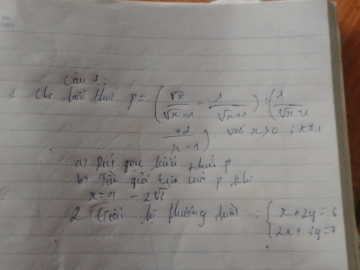 Câu 1.
1 Cho biểu thức P = (√x/(√x-1) - 1/(√x-1)) : (1/(√x-1)
+2/(x-1)) với x>0; x≠1
a) Rút gọn biểu thức P
b) Tìm giá trị của P khi
x=4 - 2√
2. Giải hệ phương trình: { x+2y=6
2x+2y=7